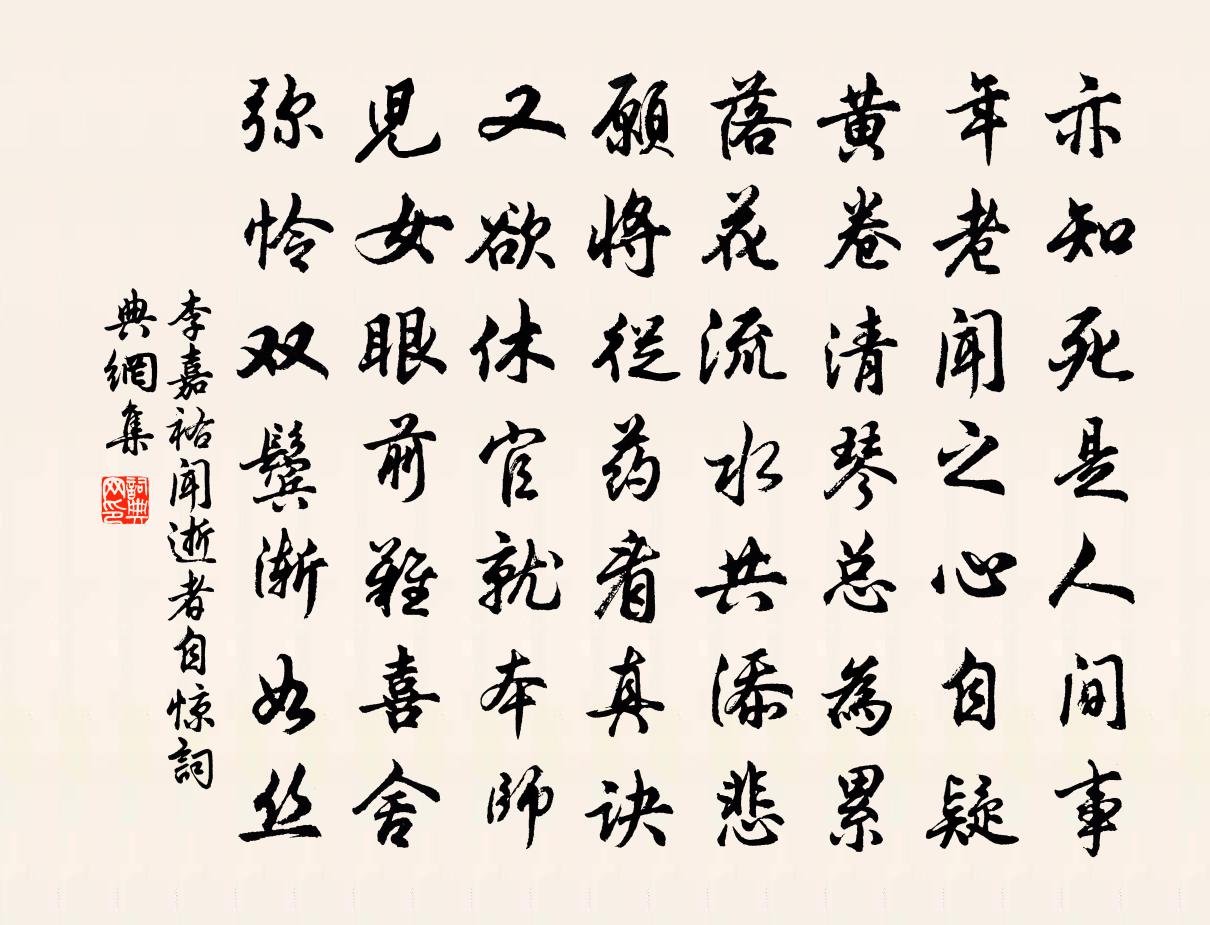 亦知死是人间事
年老闻之心自疑
黄卷清琴总為累
落花流水共添悲
願将従药看真诀
又欲休官就本师
児女眼前難喜舍
弥怜双鬓渐如丝
李嘉祐闻逝者自惊詞
典網集
詞典网印